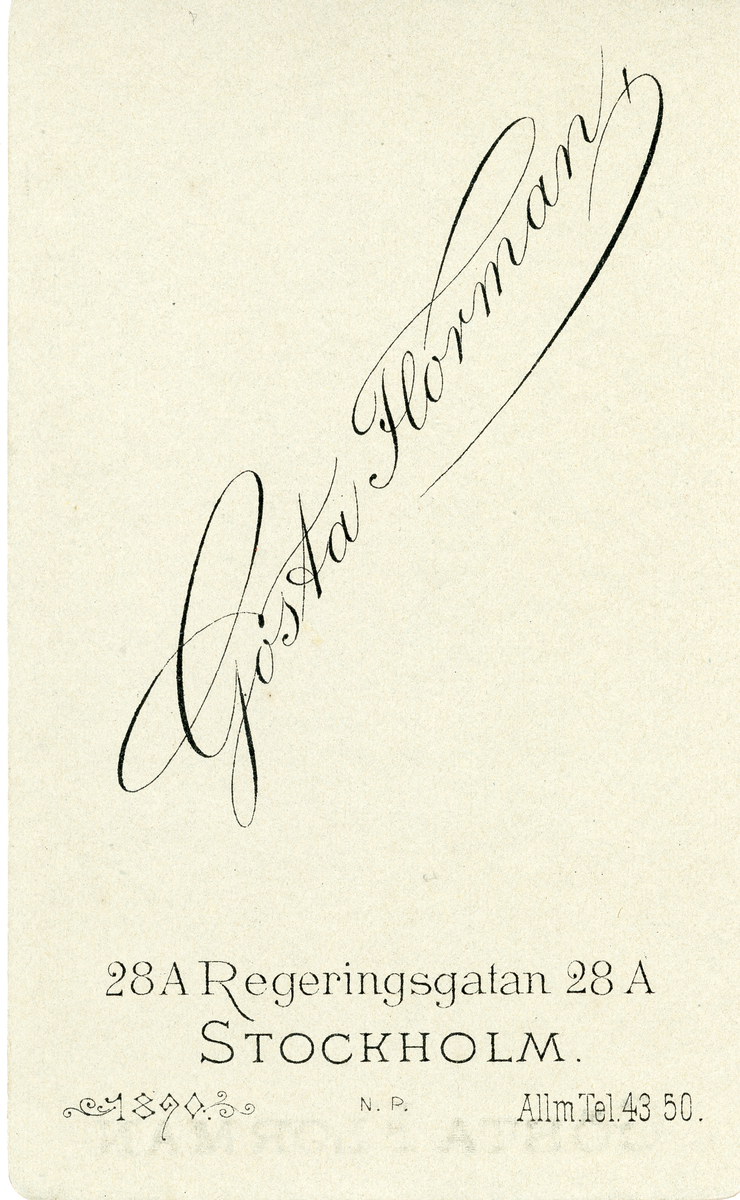 Gösta Florman
28A Regeringsgatan 28 A
STOCKHOLM.
1890. N. P. Allm.Tel.43 50.
GÖSTA FLORMAN